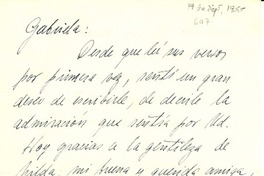 19 de Sept. 1955
Gabriela:
Desde que leí sus versos
por primera vez, sentí un gran
deseo de escribirle, de decirle la
admiración que sentía por Ud.
Hoy gracias a la gentileza de
Hilda, mi buena y querida amiga,